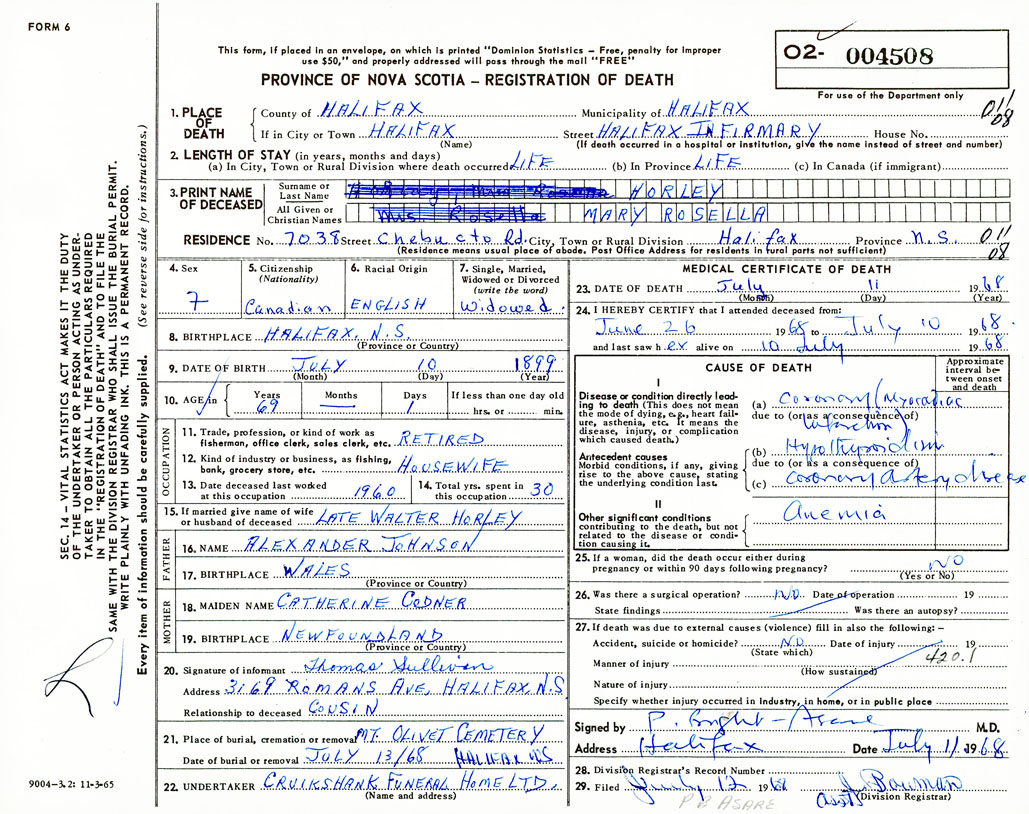 FORM 6
This form, if placed in an envelope, on which is printed "Dominion Statistics – Free, penalty for improper
use $50," and properly addressed will pass through the mail "FREE"
PROVINCE OF NOVA SCOTIA – REGISTRATION OF DEATH
O2- 004508
For use of the Department only
1. PLACE OF DEATH
County of HALIFAX Municipality of HALIFAX 011
08
If in City or Town HALIFAX Street HALIFAX INFIRMARY House No.
(Name) (If death occurred in a hospital or institution, give the name instead of street and number)
2. LENGTH OF STAY (in years, months and days)
(a) In City, Town or Rural Division where death occurred LIFE (b) In Province LIFE (c) In Canada (if immigrant)
3. PRINT NAME OF DECEASED
Surname or Last Name HORLEY
All Given or Christian Names Mrs. Rosella MARY ROSELLA
RESIDENCE No. 7038 Street Chebucto Rd. City, Town or Rural Division Halifax Province N.S. 011
08
(Residence means usual place of abode. Post Office Address for residents in rural parts not sufficient)
4. Sex 7
5. Citizenship (Nationality) Canadian
6. Racial Origin ENGLISH
7. Single, Married, Widowed or Divorced (write the word) Widowed
8. BIRTHPLACE HALIFAX, N.S.
(Province or Country)
9. DATE OF BIRTH JULY 10 1899
(Month) (Day) (Year)
10. AGE in Years 69 Months — Days 1 If less than one day old
hrs. or min.
OCCUPATION
11. Trade, profession, or kind of work as
fisherman, office clerk, sales clerk, etc. RETIRED
12. Kind of industry or business, as fishing,
bank, grocery store, etc. HOUSEWIFE
13. Date deceased last worked
at this occupation 1960
14. Total yrs. spent in
this occupation 30
15. If married give name of wife
or husband of deceased LATE WALTER HORLEY
FATHER
16. NAME ALEXANDER JOHNSON
17. BIRTHPLACE WALES
(Province or Country)
MOTHER
18. MAIDEN NAME CATHERINE CODNER
19. BIRTHPLACE NEWFOUNDLAND
(Province or Country)
20. Signature of informant Thomas Sullivan
Address 3169 ROMANS AVE, HALIFAX, N.S.
Relationship to deceased COUSIN
21. Place of burial, cremation or removal MT. OLIVET CEMETERY
Date of burial or removal JULY 13/68 HALIFAX NS
22. UNDERTAKER CRUIKSHANK FUNERAL HOME LTD.
(Name and address)
MEDICAL CERTIFICATE OF DEATH
23. DATE OF DEATH July 11 1968
(Month) (Day) (Year)
24. I HEREBY CERTIFY that I attended deceased from:
June 26 1968 to July 10 1968
and last saw her alive on 10 July 1968
CAUSE OF DEATH
Approximate interval between onset and death
I
Disease or condition directly leading to death (This does not mean the mode of dying, e.g., heart failure, asthenia, etc. It means the disease, injury, or complication which caused death.)
(a) Coronary/Myocardiac
due to (or as a consequence of)
Infarction
Antecedent causes
Morbid conditions, if any, giving rise to the above cause, stating the underlying condition last.
(b) Hypothyroidism
due to (or as a consequence of)
(c) coronary artery disease
II
Other significant conditions
contributing to the death, but not related to the disease or condition causing it.
Anemia
25. If a woman, did the death occur either during
pregnancy or within 90 days following pregnancy? NO
(Yes or No)
26. Was there a surgical operation? NO Date of operation 19
State findings Was there an autopsy?
27. If death was due to external causes (violence) fill in also the following:–
Accident, suicide or homicide? NO Date of injury 19
(State which) 420.1
Manner of injury
(How sustained)
Nature of injury
Specify whether injury occurred in industry, in home, or in public place
Signed by P. Bright-Asare M.D.
Address Halifax Date July 11 1968
28. Division Registrar's Record Number
29. Filed July 12 1968 J. Bowman
asst (Division Registrar)
P B ASARE
SEC. 14 – VITAL STATISTICS ACT MAKES IT THE DUTY
OF THE UNDERTAKER OR PERSON ACTING AS UNDER-
TAKER TO OBTAIN ALL THE PARTICULARS REQUIRED
IN THE "REGISTRATION OF DEATH" AND TO FILE THE
SAME WITH THE DIVISION REGISTRAR WHO SHALL ISSUE THE BURIAL PERMIT.
WRITE PLAINLY WITH UNFADING INK. THIS IS A PERMANENT RECORD.
Every item of information should be carefully supplied. (See reverse side for instructions.)
9004–3.2: 11-3-65